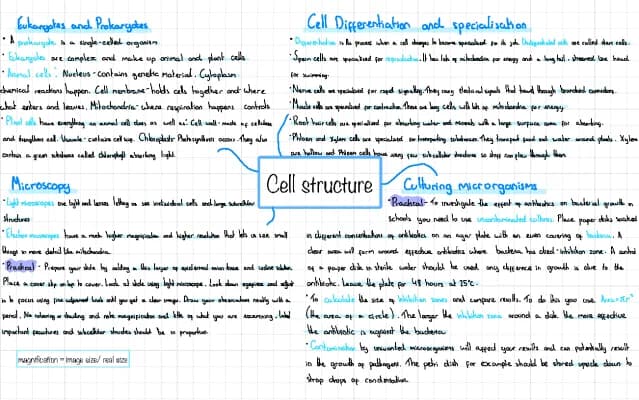 Eukaryotes and Prokaryotes
• A prokaryote is a single-celled organism
• Eukaryotes are complex and make up animal and plant cells
• Animal cells: Nucleus - contains genetic material. Cytoplasm
chemical reactions happen. Cell membrane - holds cells together and where
what enters and leaves. Mitochondria - where respiration happens controls
• Plant cells have everything an animal cell does as well as: Cell wall - made of cellulose
and strengthens cell. Vacuole - contains cell sap. Chloroplasts - Photosynthesis occurs. They also
contain a green substance called chlorophyll absorbing light.
Cell Differentiation and specialisation
• Differentiation is the process when a cell changes to become specialised for its job. Undifferentiated cells are called stem cells.
• Sperm cells are specialised for reproduction. It has lots of mitochondria for energy and a long tail, streamlined head
for swimming.
• Nerve cells are specialised for rapid signalling. They carry electrical signals that travel through branched connections.
• Muscle cells are specialised for contraction. These are long cells with lots of mitochondria for energy.
• Root hair cells are specialised for absorbing water and minerals with a large surface area for absorbing.
• Phloem and Xylem cells are specialised for transporting substances. They transport food and water around plants. Xylem
are hollow and Phloem cells have very few subcellular structures so stuff can flow through them
Cell structure
Microscopy
• Light microscopes use light and lenses letting us see individual cells and large subcellular
structures
• Electron microscopes have a much higher magnification and higher resolution that lets us see small
things in more detail like mitochondria.
• Practical - Prepare your slide by adding a thin layer of epidermal onion tissue and iodine solution.
Place a cover slip on top to cover. Look at slide using light microscope. Look down eyepiece and adjust
is in focus using fine adjustment knob until you get a clear image. Draw your observation neatly with a
pencil. No colouring or shading and write magnification and title of what you are observing. Label
important structures and subcellular structures should be in proportion.
magnification = image size/ real size
Culturing microrganisms
• Practical - To investigate the effect of antibiotics on bacterial growth in
schools you need to use uncontaminated cultures. Place paper disks soaked
in different concentrations of antibiotics on an agar plate with an even covering of bacteria. A
clear area will form around effective antibiotics where bacteria has died - inhibition zone. A control
of a paper disk in sterile water should be used only difference in growth is due to the
antibiotic. Leave the plate for 48 hours at 25°c.
• To calculate the size of inhibition zones and compare results. To do this you use Area=πr²
(the area of a circle). The larger the inhibition zone around a disk the more effective
the antibiotic is against the bacteria.
• Contamination by unwanted microorganisms will affect your results and can potentially result
in the growth of pathogens. The petri dish for example should be stored upside down to
stop drops of condensation.